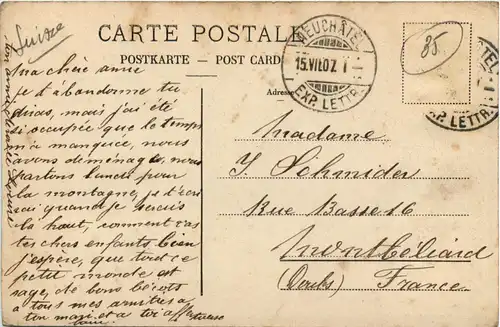 Suisse
CARTE POSTALE
POSTKARTE - POST CARD
NEUCHÂTEL
15.VII.07
EXP. LETTR.
EXP. LETTR.
35.
Adresse
ma chère amie
je t'abandonne tu
diras, mais j'ai été
si occupée que le temps
m'a manqué, nous
avons déménagé, nous
partons lundi pour
la montagne, je t'écri
rai quand je serais
là haut, comment vas
tes chers enfants bien
j'espère, que tout ce
petit monde est
sage, de bons baisers
à tous mes amitiés à
ton mari, et à toi affectueuse
Madame
J. Schmider
Rue Basse 16
Montbéliard
(Doubs) France